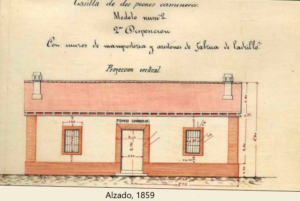 Casilla de dos peones camineros.
Modelo núm.º 2
2ª Disposicion
Con muros de mamposteria y aristones de fabrica de ladrillo
Proyeccion vertical
PEONES CAMINEROS
Alzado, 1859